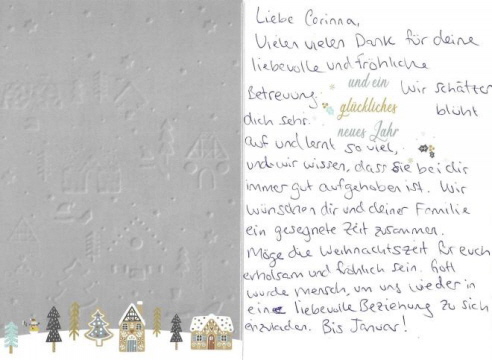 Liebe Corinna,
Vielen vielen Dank für deine
liebevolle und fröhliche
Betreuung. Wir schätzen
dich sehr. blüht
auf und lernt so viel,
und wir wissen, dass sie bei dir
immer gut aufgehoben ist. Wir
wünschen dir und deiner Familie
ein gesegnete Zeit zusammen.
Möge die Weihnachtszeit für euch
erholsam und fröhlich sein. Gott
wurde mensch, um uns wieder in
eine liebevolle Beziehung zu sich
einzuladen. Bis Januar!
und ein
glückliches
neues Jahr